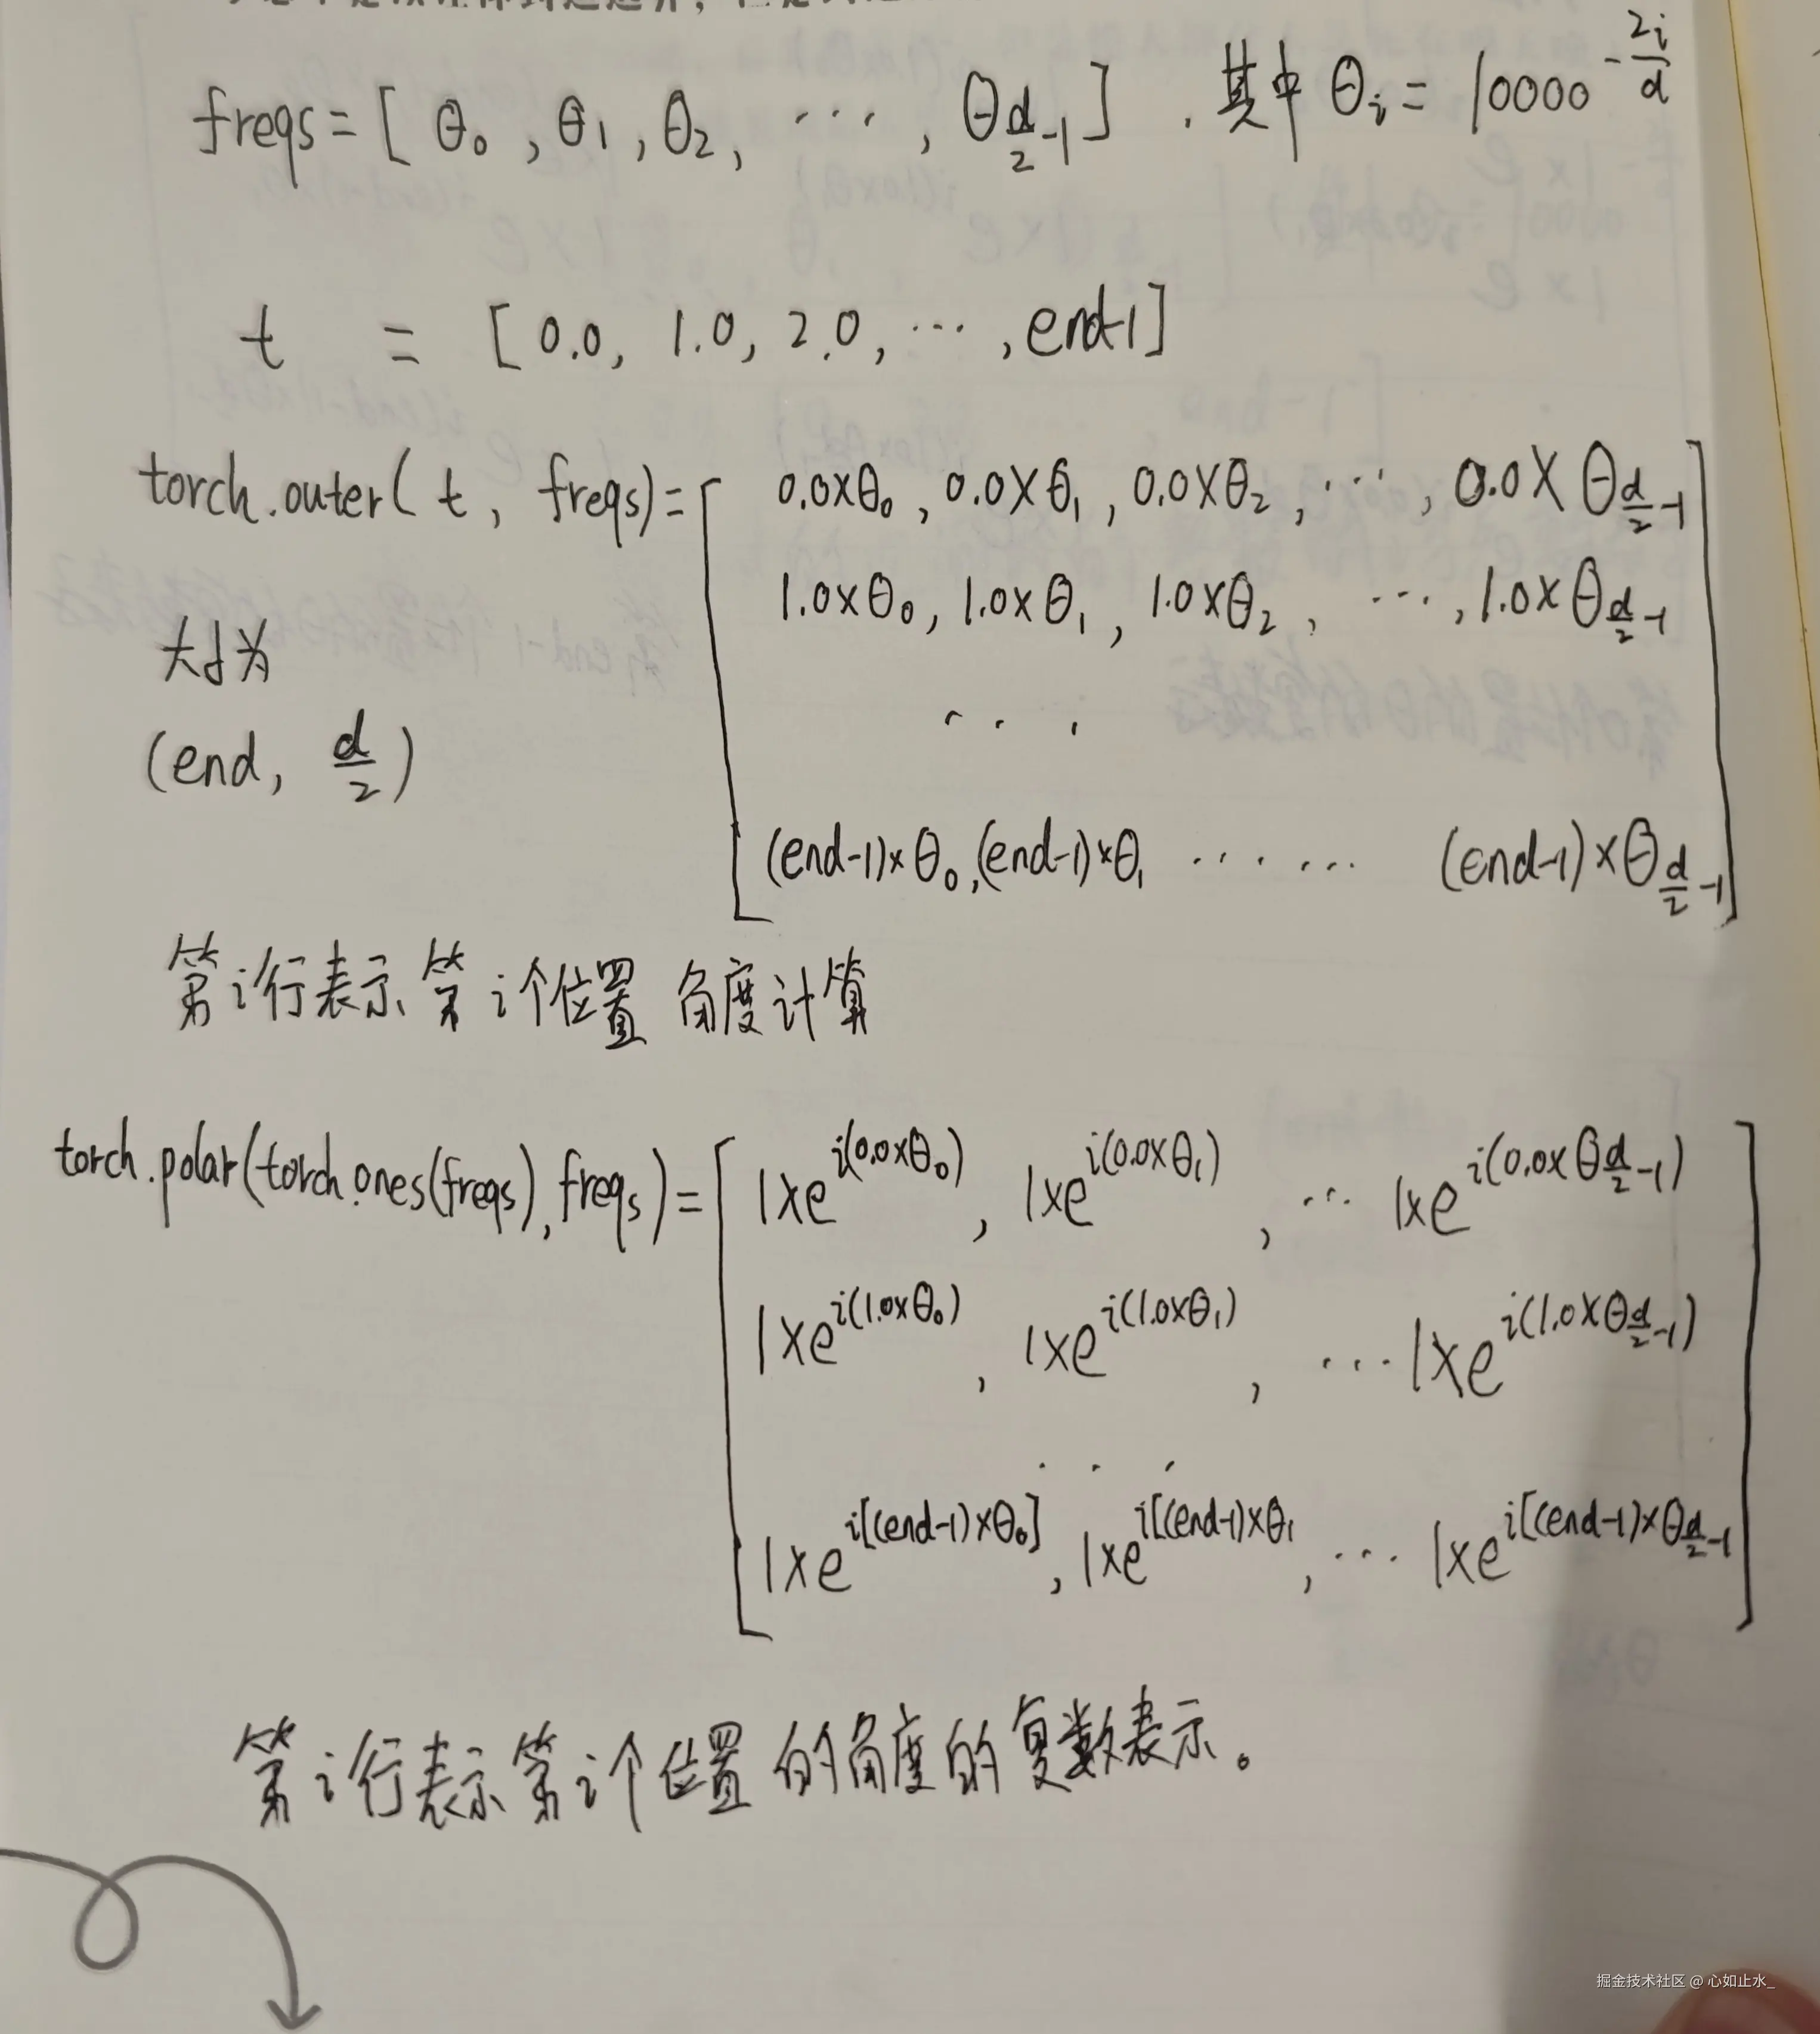 freqs = [ θ₀ , θ₁ , θ₂ , ··· , θ_{d/2 -1} ] . 其中 θᵢ = 10000^{-2i/d}
t = [ 0.0, 1.0, 2.0, ··· , end-1 ]
torch.outer( t , freqs) = [ 0.0×θ₀ , 0.0×θ₁ , 0.0×θ₂ , ··· , 0.0×θ_{d/2 -1}
1.0×θ₀ , 1.0×θ₁ , 1.0×θ₂ , ··· , 1.0×θ_{d/2 -1}
大小为
···
(end, d/2)
(end-1)×θ₀ , (end-1)×θ₁ ······ (end-1)×θ_{d/2 -1} ]
第i行表示第i个位置 角度计算
torch.polar(torch.ones(freqs), freqs) = [ 1×e^{i(0.0×θ₀)} , 1×e^{i(0.0×θ₁)} , ··· 1×e^{i(0.0×θ_{d/2 -1})}
1×e^{i(1.0×θ₀)} , 1×e^{i(1.0×θ₁)} , ··· 1×e^{i(1.0×θ_{d/2 -1})}
···
1×e^{i[(end-1)×θ₀]} , 1×e^{i[(end-1)×θ₁} , ··· 1×e^{i[(end-1)×θ_{d/2 -1}} ]
第i行表示第i个位置的角度的复数表示。
掘金技术社区 @ 心如止水_